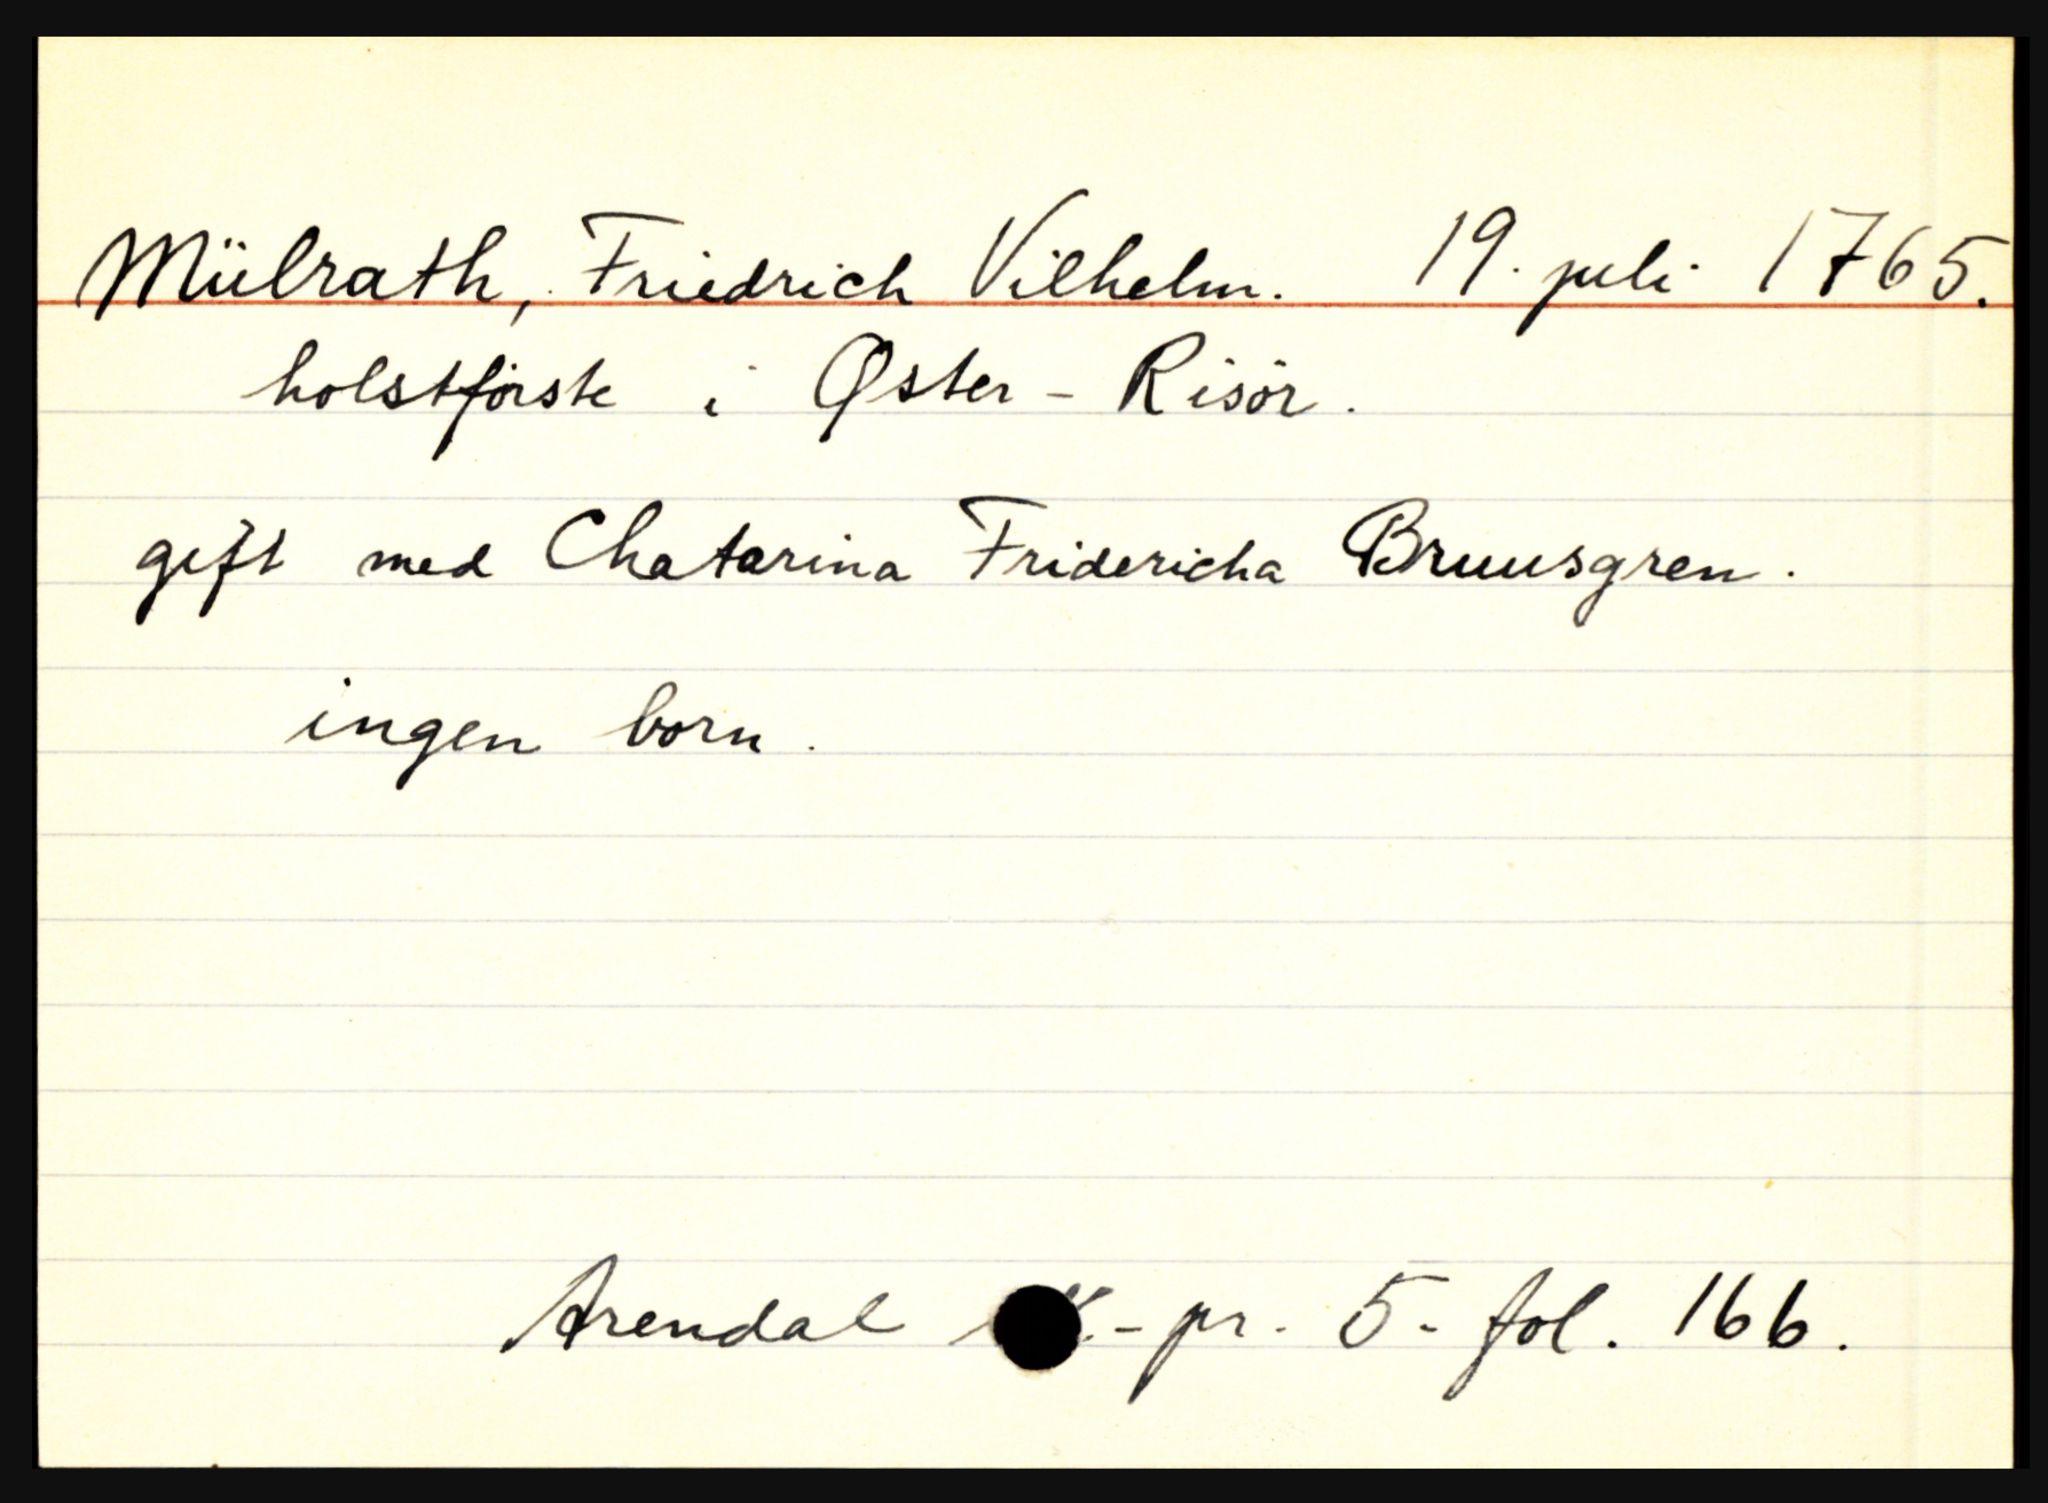 Mülrath, Friedrich Vilhelm. 19. juli 1765.
holstförste i Øster-Risör.
gift med Chatarina Fridericha Bruusgren.
ingen born.
Arendal - pr. 5 - fol. 166.